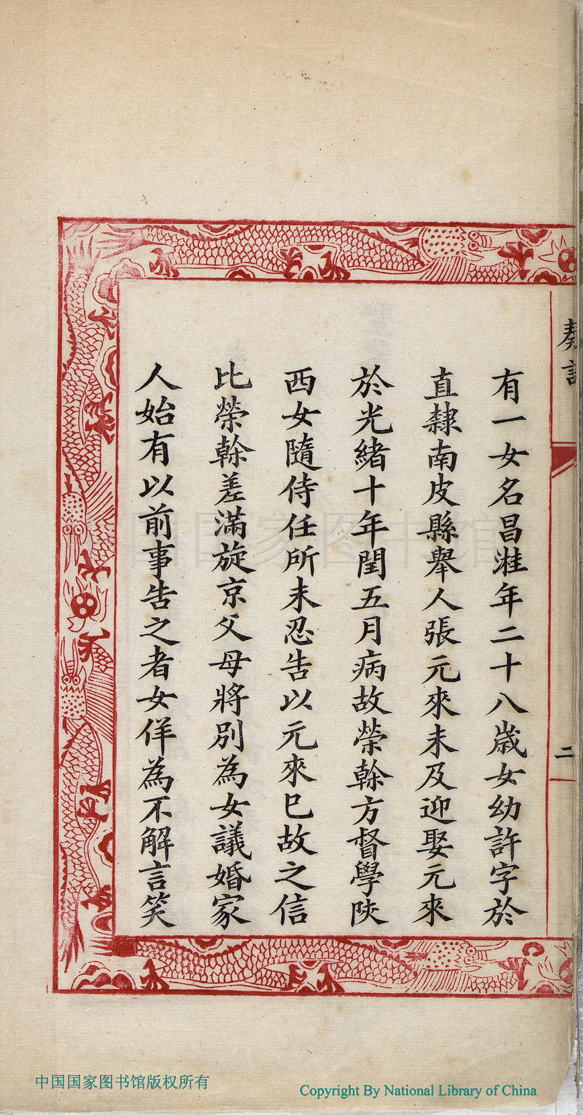 奏
二
有一女名昌㴤年二十八歲女幼許字於
直隸南皮縣舉人張元來未及迎娶元來
於光緒十年閏五月病故榮榦方督學陝
西女隨侍任所未忍告以元來已故之信
比榮榦差滿旋京父母將別為女議婚家
人始有以前事告之者女佯為不解言笑
中国国家图书馆
中国国家图书馆版权所有
Copyright By National Library of China